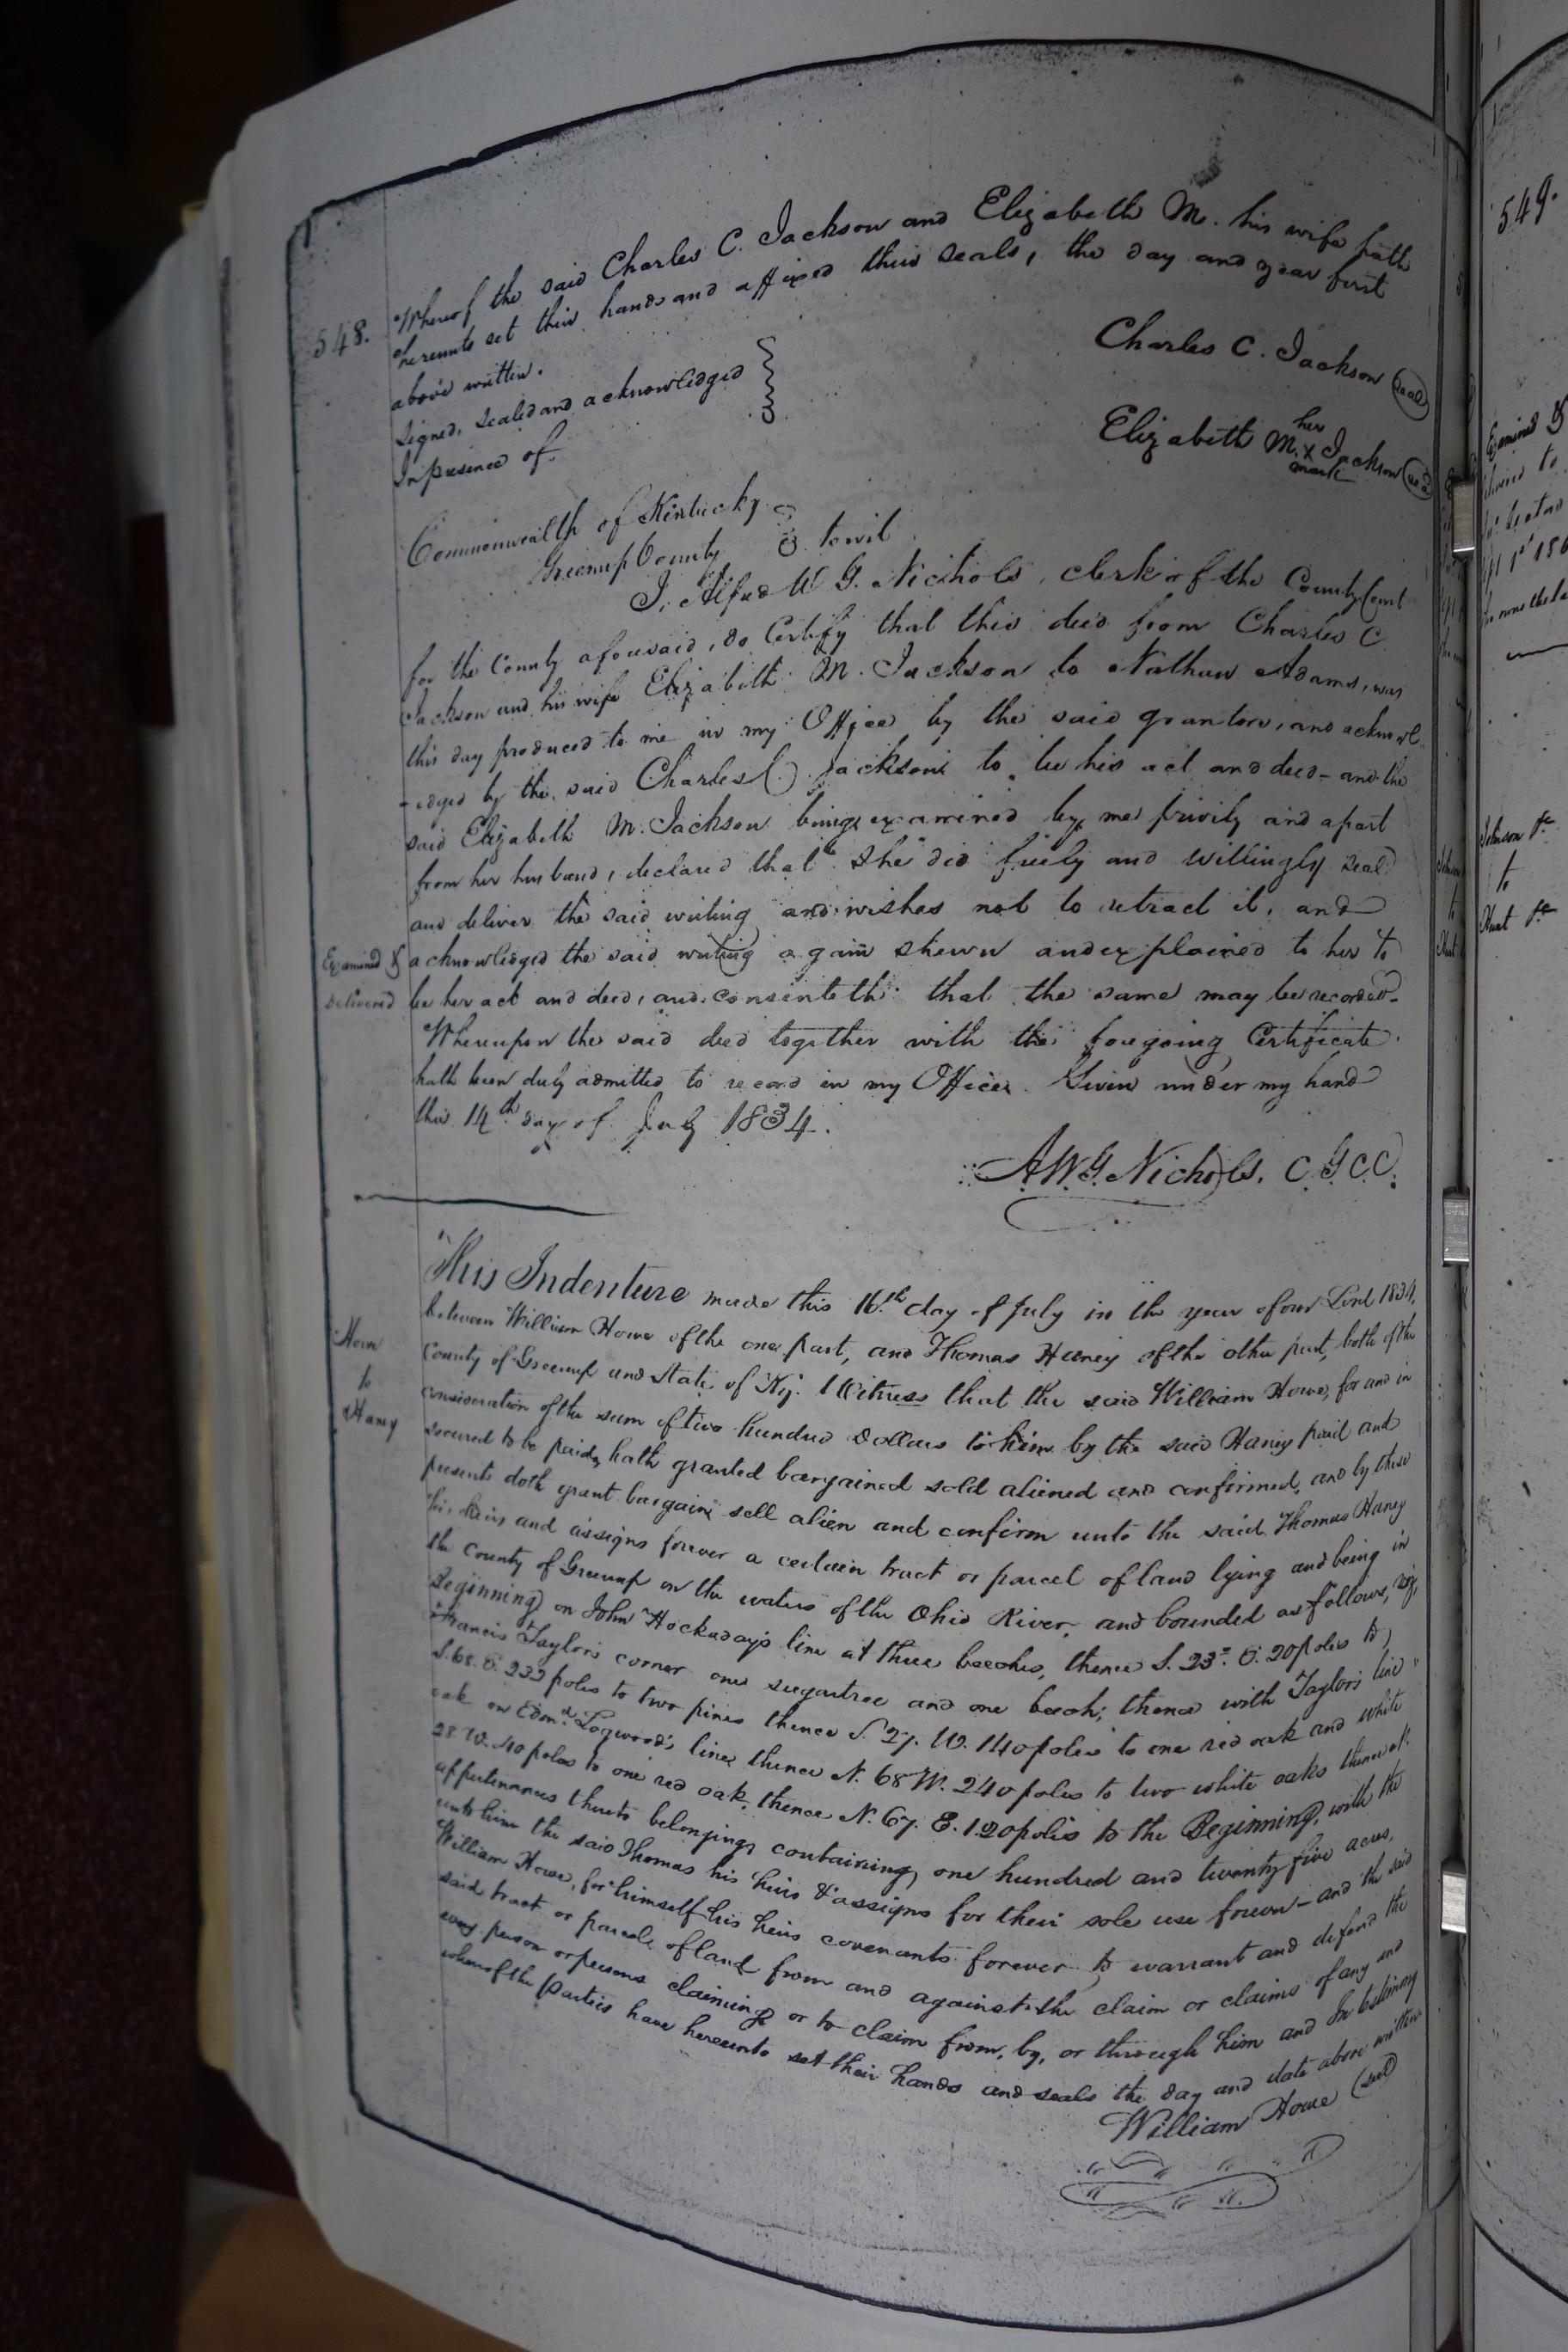 548.
Whereof the said Charles C. Jackson and Elizabeth M. his wife hath
hereunto set their hands and affixed their seals, the day and year first
above written.
Signed, Sealed and acknowledged
In presence of.
Charles C. Jackson (seal)
her
Elizabeth M. X Jackson (seal)
mark
Commonwealth of Kentucky
Greenup County towit
I, Alfred W G. Nichols, clerk of the County Court
for the County aforesaid, do Certify that this deed from Charles C
Jackson and his wife Elizabeth M. Jackson to Nathan Adams, was
this day produced to me in my Office by the said grantors, and acknowl-
-edged by the said Charles C. Jackson to be his act and deed - and the
said Elizabeth M. Jackson being examined by me privily and apart
from her husband, declared that she did freely and willingly seal
and deliver the said writing and wishes not to retract it, and
acknowledged the said writing again shewn and explained to her to
be her act and deed, and consenteth that the same may be recorded.
Examined &
delivered
Whereupon the said deed together with the foregoing Certificate
hath been duly admitted to record in my Office. Given under my hand
this 14th day of July 1834.
A.W.G. Nichols, C.G.C.C.
Howe
to
Haney
This Indenture made this 16th day of July in the year of our Lord 1834,
between William Howe of the one part, and Thomas Haney of the other part, both of the
County of Greenup and State of Ky. Witness that the said William Howe, for and in
consideration of the sum of two hundred dollars to him by the said Haney paid and
secured to be paid, hath granted bargained sold aliened and confirmed, and by these
presents doth grant bargain sell alien and confirm unto the said Thomas Haney
his heirs and assigns forever a certain tract or parcel of land lying and being in
the County of Greenup on the waters of the Ohio River, and bounded as follows, viz,
Beginning on John Hockaday's line at three beeches, thence S. 23. E. 20 poles to
Francis Taylors corner one sugartree and one beech; thence with Taylors line
S. 68. E. 232 poles to two pines thence S. 27. W. 140 poles to one red oak and white
oak on Edmd. Logwood's line, thence N. 68 W. 240 poles to two white oaks thence N.
28. W. 40 poles to one red oak, thence N. 67. E. 120 poles to the Beginning, with the
appurtenances thereto belonging, containing one hundred and twenty five acres,
unto him the said Thomas his heirs & assigns for their sole use forever - and the said
William Howe, for himself his heirs covenants forever to warrant and defend the
said tract or parcel of land from and against the claim or claims of any and
every person or persons claiming or to claim from, by, or through him and In testimony
whereof the parties have hereunto set their hands and seals the day and date above written
William Howe (seal)
549.
Examined &
to
Johnson &c
to
Hunt &c